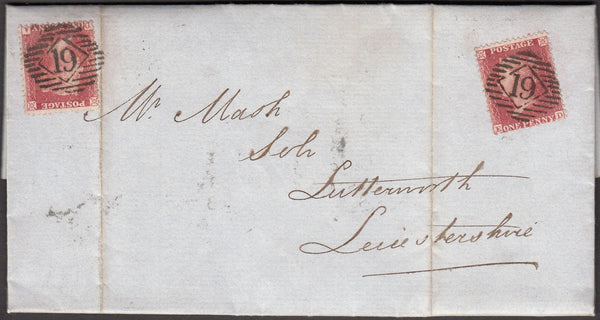 19
POSTAGE
POSTAGE
19
ONE PENNY
Mr. Mash
Solr
Lutterworth
Leicestershire